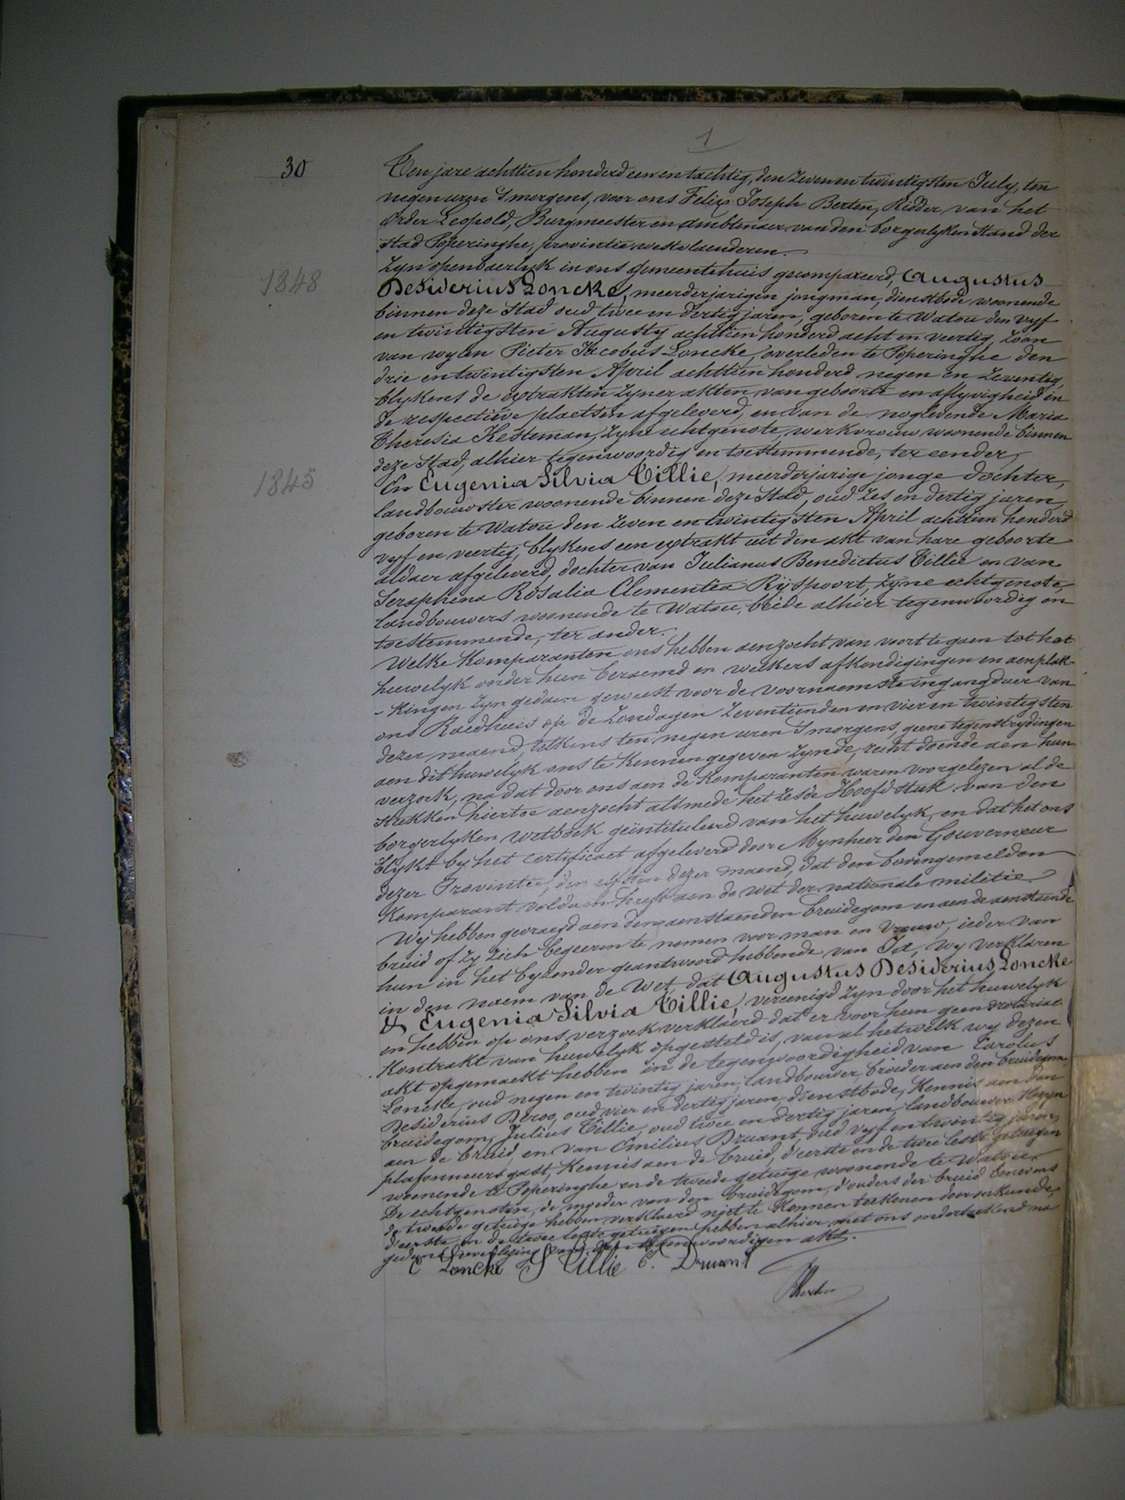 1
30
Ten jare achttien honderd een en tachtig, den zeven en twintigsten July, ten
negen uren 's morgens, voor ons Felix Joseph Berten, Ridder van het
Order Leopold, Burgmeester en ambtenaer van den borgerlyken stand der
stad Poperinghe, provintie westvlaenderen.
Zyn openbaerlyk in ons gemeentehuis gecompareerd, Augustus
1848
Desiderius Loncke, meerderjarigen jongman, dienstbode woonende
binnen deze Stad oud twee en dertig jaren, geboren te Watou den vyf
en twintigsten Augusty achttien honderd acht en veertig, zoon
van wylen Pieter Jacobus Loncke, overleden te Poperinghe den
drie en twintigsten April achttien honderd negen en zeventig,
blykens de extrakten zyner akten van geboorte en aflyvigheid in
de respectieve plaetsen afgeleverd, en van de noglevende Maria
Theresia Kesteman, zyne echtgenote, werkvrouw woonende binnen
deze Stad, alhier tegenwoordig en toestemmende, ter eender,
1845
En Eugenia Silvia Tillie, meerderjarige jonge dochter,
landbouwster woonende binnen deze Stad, oud zes en dertig jaren,
geboren te Watou den zeven en twintigsten April achttien honderd
vyf en veertig, blykens een extrakt uit den akt van hare geboorte
aldaer afgeleverd, dochter van Julianus Benedictus Tillie en van
Seraphina Rosalia Clementia Ryspoort, zyne echtgenote,
landbouwers woonende te Watou, beide alhier tegenwoordig en
toestemmende, ter ander.
Welke Komparanten ons hebben aenzocht van voort te gaen tot het
huwelyk onder hun beraemd en welkers afkondigingen en aenplak-
-kingen zyn gedaen geweest voor de voornaemste ingangdeur van
ons Raedhuis op de Zondagen zeventienden en vier en twintigsten
dezer maend, telkens ten negen uren 's morgens, geene tegenstrydingen
aen dit huwelyk ons te kennen gegeven zynde, recht doende aen hun
verzoek, na dat door ons aen de Komparanten waren voorgelezen al de
stukken hiertoe aenzocht alsmede het zesde Hoofdstuk van den
borgerlyken wetboek geïntituleerd van het huwelyk, en dat het ons
blykt by het certificaet afgeleverd door Mynheer den Gouverneur
dezer Provintie, den elfsten dezer maend, dat den bovengemelden
Komparant voldaen heeft aen de wet der nationale militie.
Wy hebben gevraegd aen den aenstaenden bruidegom en aen de aenstaende
bruid of zy zich begeeren te nemen voor man en vrouw, ieder van
hun in het byzonder geantwoord hebbende van Ja, wy verklaren
in den naem van de Wet, dat Augustus Desiderius Loncke
& Eugenia Silvia Tillie, vereenigd zyn door het huwelyk
en hebben op ons verzoek verklaerd dat er voor hun geen notariae
Kontrakt van huwelyk opgesteld is, van al hetwelk wy dezen
akt opgemaekt hebben in de tegenwoordigheid van Carolus
Loncke, oud negen en twintig jaren, landbouwer, broeder aen den bruidegom
Desiderius Deroo, oud vier en dertig jaren, dienstbode, Kennis aen den
bruidegom, Julius Tillie, oud twee en dertig jaren, landbouwer Kozyn
aen de bruid, en van Emilius Druant, oud vyf en twintig jaren,
plafonneersgast, Kennis aen de bruid, d'eerste en de twee leste getuigen
woonende te Poperinghe en de tweede getuige woonende te Watou.
De echtgenoten, de moeder van den bruidegom, d'ouders der bruid benevens
de tweede getuige hebben verklaerd niet te Konnen teekenen door onkunde,
d'eerste en de twee leste getuigen hebben alhier met ons onderteekend na
gedane voorlezing van den tegenwoordigen akt.
C Loncke J Tillie E. Druant